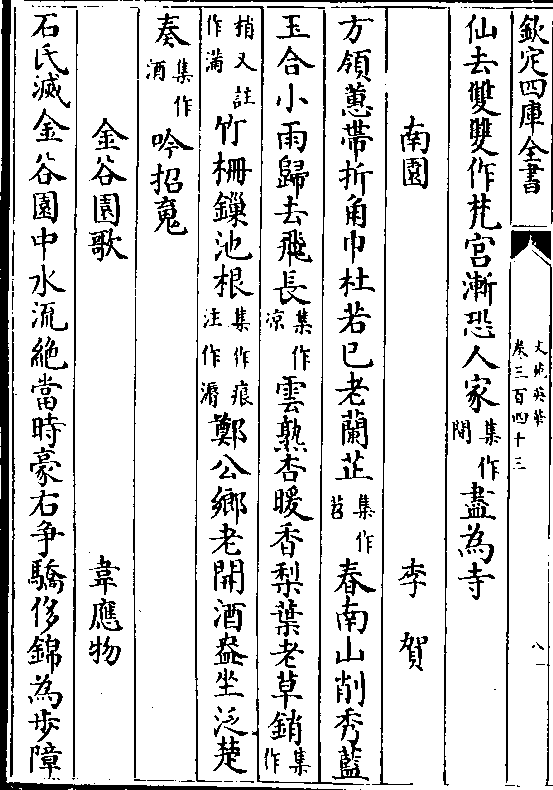 欽定四庫全書
文苑英華
卷三百四十三
八
仙去雙雙作梵宮漸恐人家集作間盡為寺
南園 李賀
方領蕙帶折角巾杜若已老蘭芷集作苕春南山削秀藍
玉合小雨歸去飛長集作涼雲熟杏暖香梨葉老草銷集作
梢又註作滿竹柵鏁池根集作痕注作濟鄭公鄉老開酒盎坐泛楚
奏集作酒吟招䰟
金谷園歌 韋應物
石氏滅金谷園中水流絶當時豪右争驕侈錦為歩障